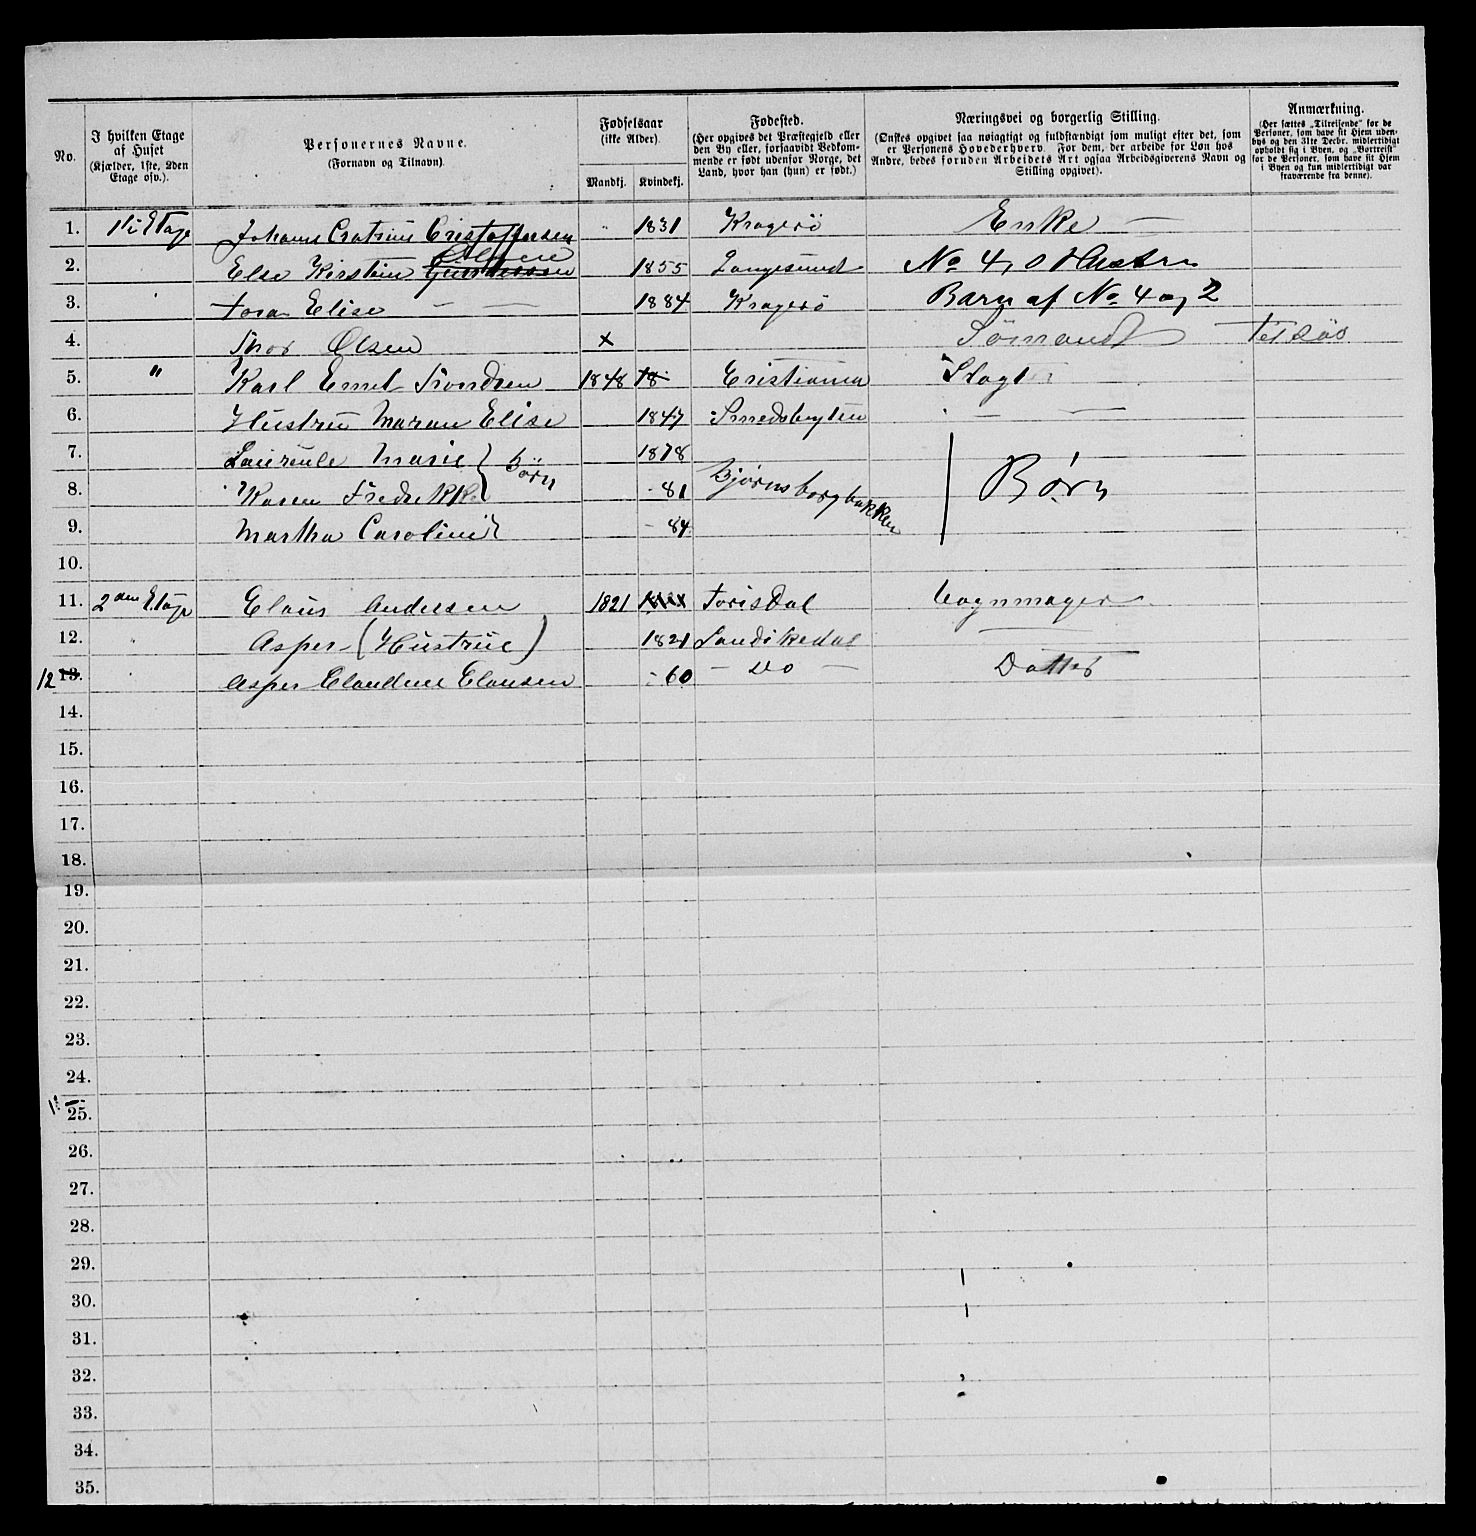 No.
I hvilken Etage af Huset (Kjælder, 1ste, 2den Etage osv.).
Personernes Navne. (Fornavn og Tilnavn).
Fødselsaar (ikke Alder). Mandkj. Kvindekj.
Fødested. (Her opgives det Præstegjeld eller den By eller, forsaavidt Vedkommende er født udenfor Norge, det Land, hvor han (hun) er født.)
Næringsvei og borgerlig Stilling. (Ønskes opgivet saa nøiagtigt og fuldstændigt som muligt efter det, som er Personens Hovederhverv. For dem, der arbeide for Løn hos Andre, bedes foruden Arbeidets Art ogsaa Arbeidsgiverens Navn og Stilling opgivet).
Anmærkning. (Her sættes „Tilreisende" for de Personer, som have sit Hjem udenbys og den 31te Decbr. midlertidigt opholdt sig i Byen, og „Bortreist" for de Personer, som have sit Hjem i Byen og kun midlertidigt var fraværende fra denne).
1. 1ste Etage Johanne Catrine Cristoffersen 1831 Kragerö Enke —
2. Else Kirstine Olsen 1855 Langesund No 4, s Hustru
3. Tora Elise — — 1884 Kragerö Barn af No 4 og 2
4. Thor Olsen x Sömand Tilsös
5. " Karl Emel Trondsen 1848 18 Cristiania Slagt
6. Hustru Maran Elise 1847 Smedsbugten — —
7. Laurence Marie } Börn 1878
8. Karen Fredrikke - 81 Bjørnsborgbakken Børn
9. Martha Caroline - 84
10.
11. 2den Etage Claus Andersen 1821 Torisdal Vognmager
12. Asper (Hustrue) 1821 Sandökedal —
12 13. Asper Claudine Clausen - 60 — Do — Datter
14.
15.
16.
17.
18.
19.
20.
21.
22.
23.
24.
25.
26.
27.
28.
29.
30.
31.
32.
33.
34.
35.